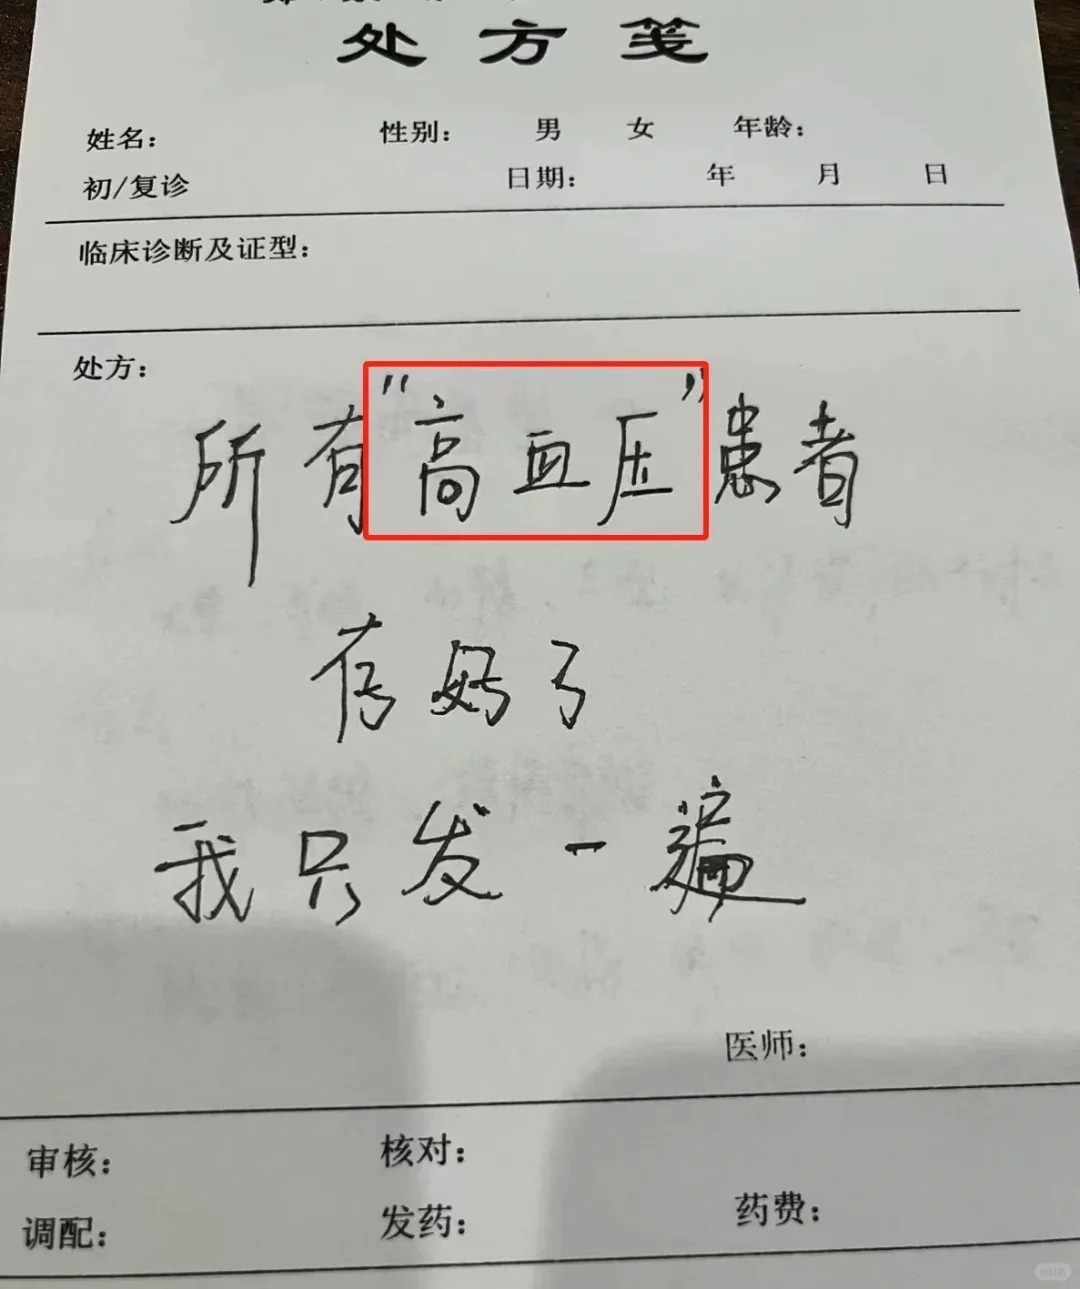 处方笺
姓名： 性别： 男 女 年龄：
初/复诊 日期： 年 月 日
临床诊断及证型：
处方：
所有"高血压"患者
存好了
我只发一遍
医师：
审核： 核对：
调配： 发药： 药费：